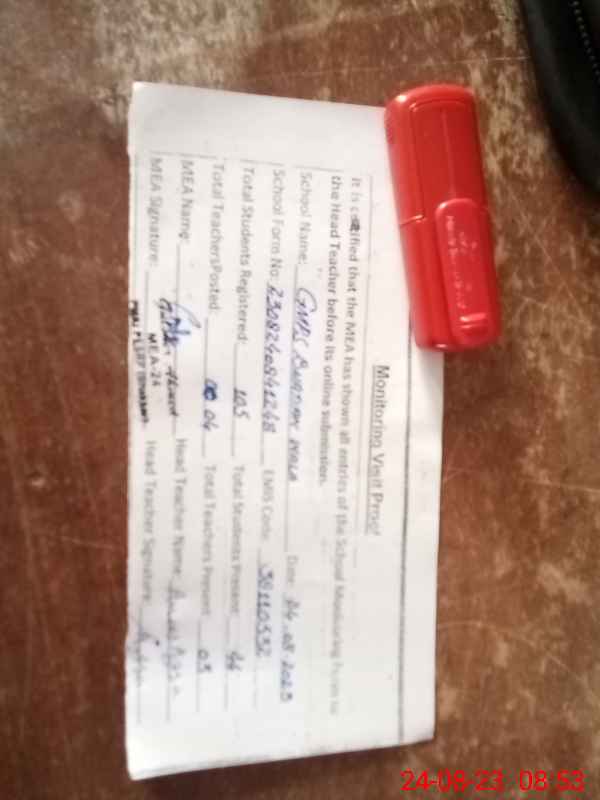 Monitoring Visit Proof
It is certified that the MEA has shown all entries of the School Monitoring Form to
the Head Teacher before its online submission.
School Name: GMPS WALA Date: 24.08.2023
School Form No: 2308240841248 EMIS Code: 38110332
Total Students Registered: 105 Total Students Present: 44
Total Teachers Posted: 04 Total Teachers Present: 03
MEA Name: Head Teacher Name:
MEA Signature: MEA-24 Head Teacher Signature:
24-08-23 08:53